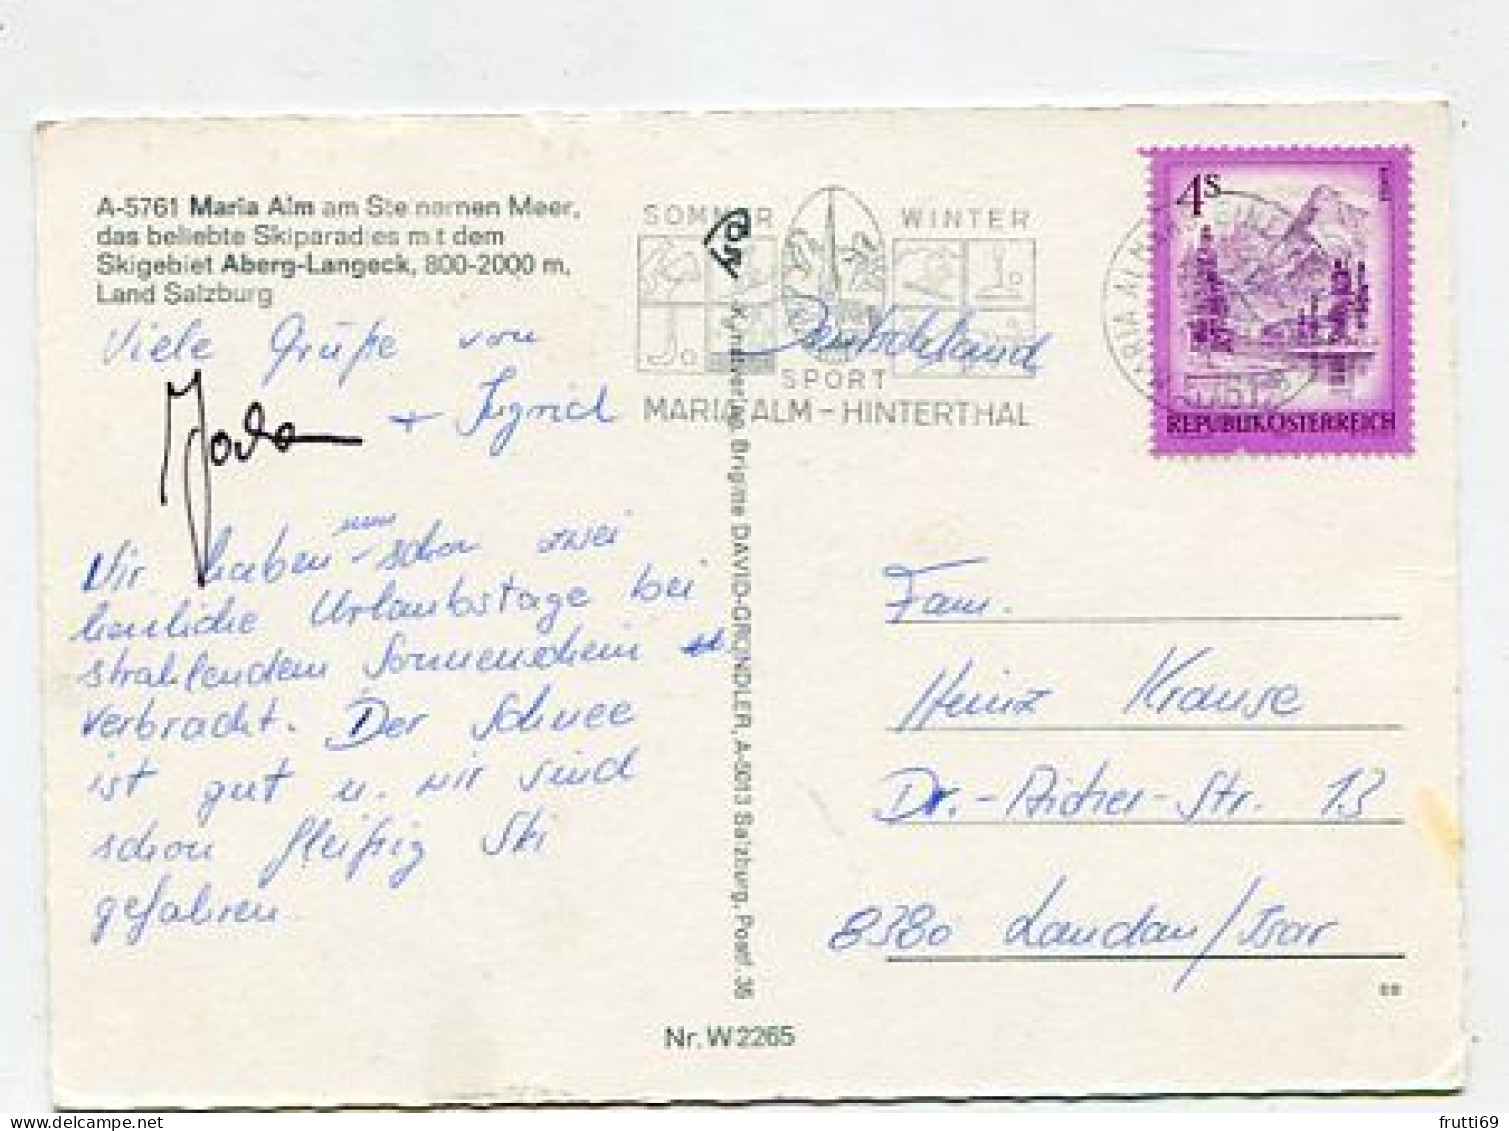 A-5761 Maria Alm am Steinernen Meer,
das beliebte Skiparadies mit dem
Skigebiet Aberg-Langeck, 800-2000 m,
Land Salzburg
Viele Grüße von
+ Ingrid
Wir haben nun schon zwei
herrliche Urlaubstage bei
strahlendem Sonnenschein
verbracht. Der Schnee
ist gut u. wir sind
schon fleißig Ski
gefahren
SOMMER WINTER
SPORT
MARIA ALM - HINTERTHAL
4S
REPUBLIK ÖSTERREICH
Deutschland
Brigitte DAVID-GRÜNDLER, A-5013 Salzburg, Postf. 36
Fam.
Heinz Krause
Dr.-Aicher-Str. 13
8380 Landau/Isar
Nr. W 2265
frutti69